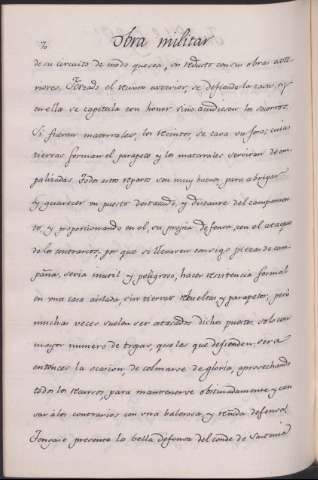 70 obra militar
de su circuito de modo que sea, un reducto con sus obras exte
riores. Forzado el recinto exterior, se defiende la casa, y
en ella se capitula con honor sino acudiesen los socorros.
Si fueran matorrales, los recintos, se cava un foso, cuias
tierras forman el parapeto y los matorrales serviran de em
palizadas. Todos estos reparos son muy buenos, para abrigar
y guarecer un puesto destacado, y distante del campamen
to, y proporcionando en el, su propia defensa, en el ataque
de los contrarios, por que si llevaren consigo piezas de cam
paña, seria inutil y peligroso, hacer resistencia formal
en una casa aislada, sin tierras rebueltas y parapetos, pero
muchas veces suelen ser atacados dichos puestos solo con
mayor numero de tropas, que las que defienden, sera
entonces la ocacion de colmarse de gloria, aprovechando
todos los recursos, para mantenerse obstinadamente y can
sar a los contrarios con una balerosa, y reñida defensa.
Tengase presente la bella defensa del conde de